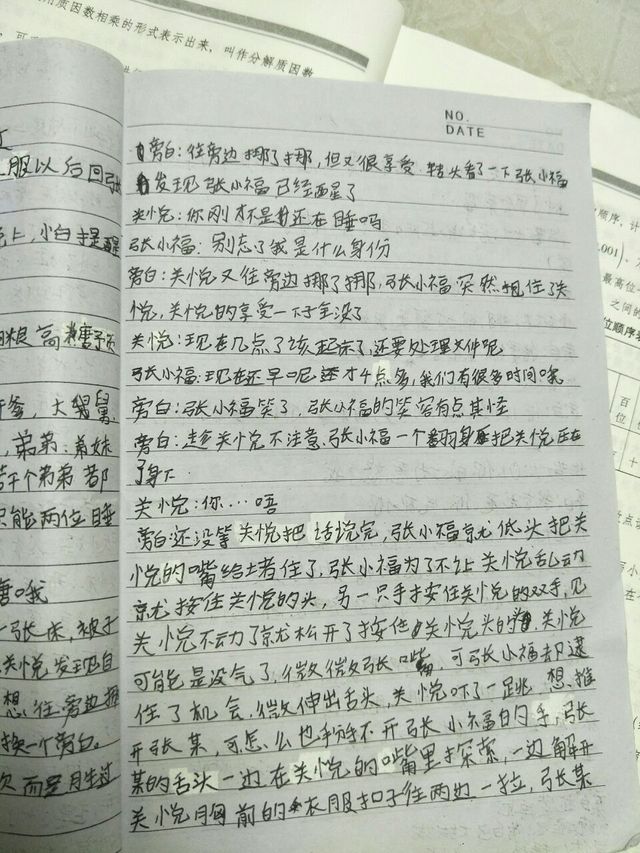 质因数相乘的形式表示出来，叫作分解质因数
NO.
DATE
旁白：往旁边挪了挪，但又很享受，转头看了一下张小福
发现张小福已经醒了
关悦：你刚才不是还在睡吗
张小福：别忘了我是什么身份
旁白：关悦又往旁边挪了挪，张小福突然抱住了关
悦，关悦的享受一下子全没了
关悦：现在几点了该起床了，还要处理文件呢
张小福：现在还早呢还才4点多，我们有很多时间哦
旁白：张小福笑了，张小福的笑容有点其怪
旁白：趁关悦不注意，张小福一个翻身把关悦压在
了身下
关悦：你…唔
旁白：还没等关悦把话说完，张小福就低头把关
悦的嘴给堵住了，张小福为了不让关悦乱动
就按住关悦的头，另一只手按住关悦的双手，见
关悦不动了就松开了按住关悦头的手，关悦
可能是没气了，微微张嘴，可张小福却逮
住了机会，微伸出舌头，关悦吓了一跳，想推
开张某，可怎么也掰不开张小福的手，张
某的舌头一边在关悦的嘴里探索，一边解开
关悦胸前的衣服扣子往两边一拉，张某
服以后回
小白才是
糖
大舅舅
弟弟：弟妹
个弟弟都
只能两位睡
哦
一张床，被子
关悦发现自
想，往旁边挪
换一个旁白。
顺序，计
.001)，
最高位
之间的
位顺序表
百
位
十